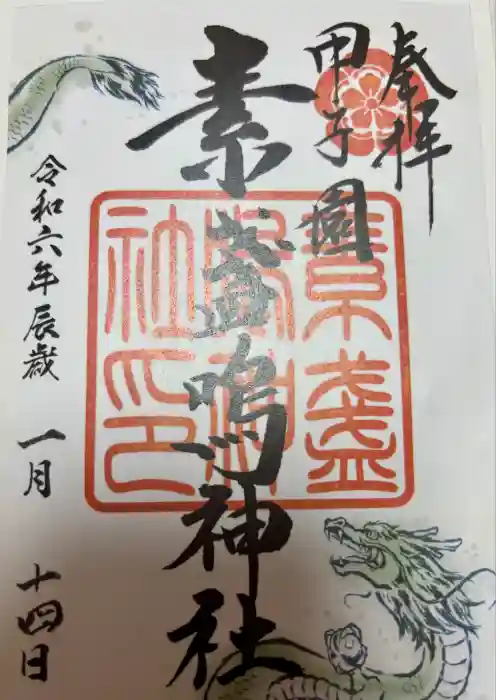 奉拝
甲子園
素盞鳴神社
素盞
嗚神
社印
令和六年辰歳 一月 十四日